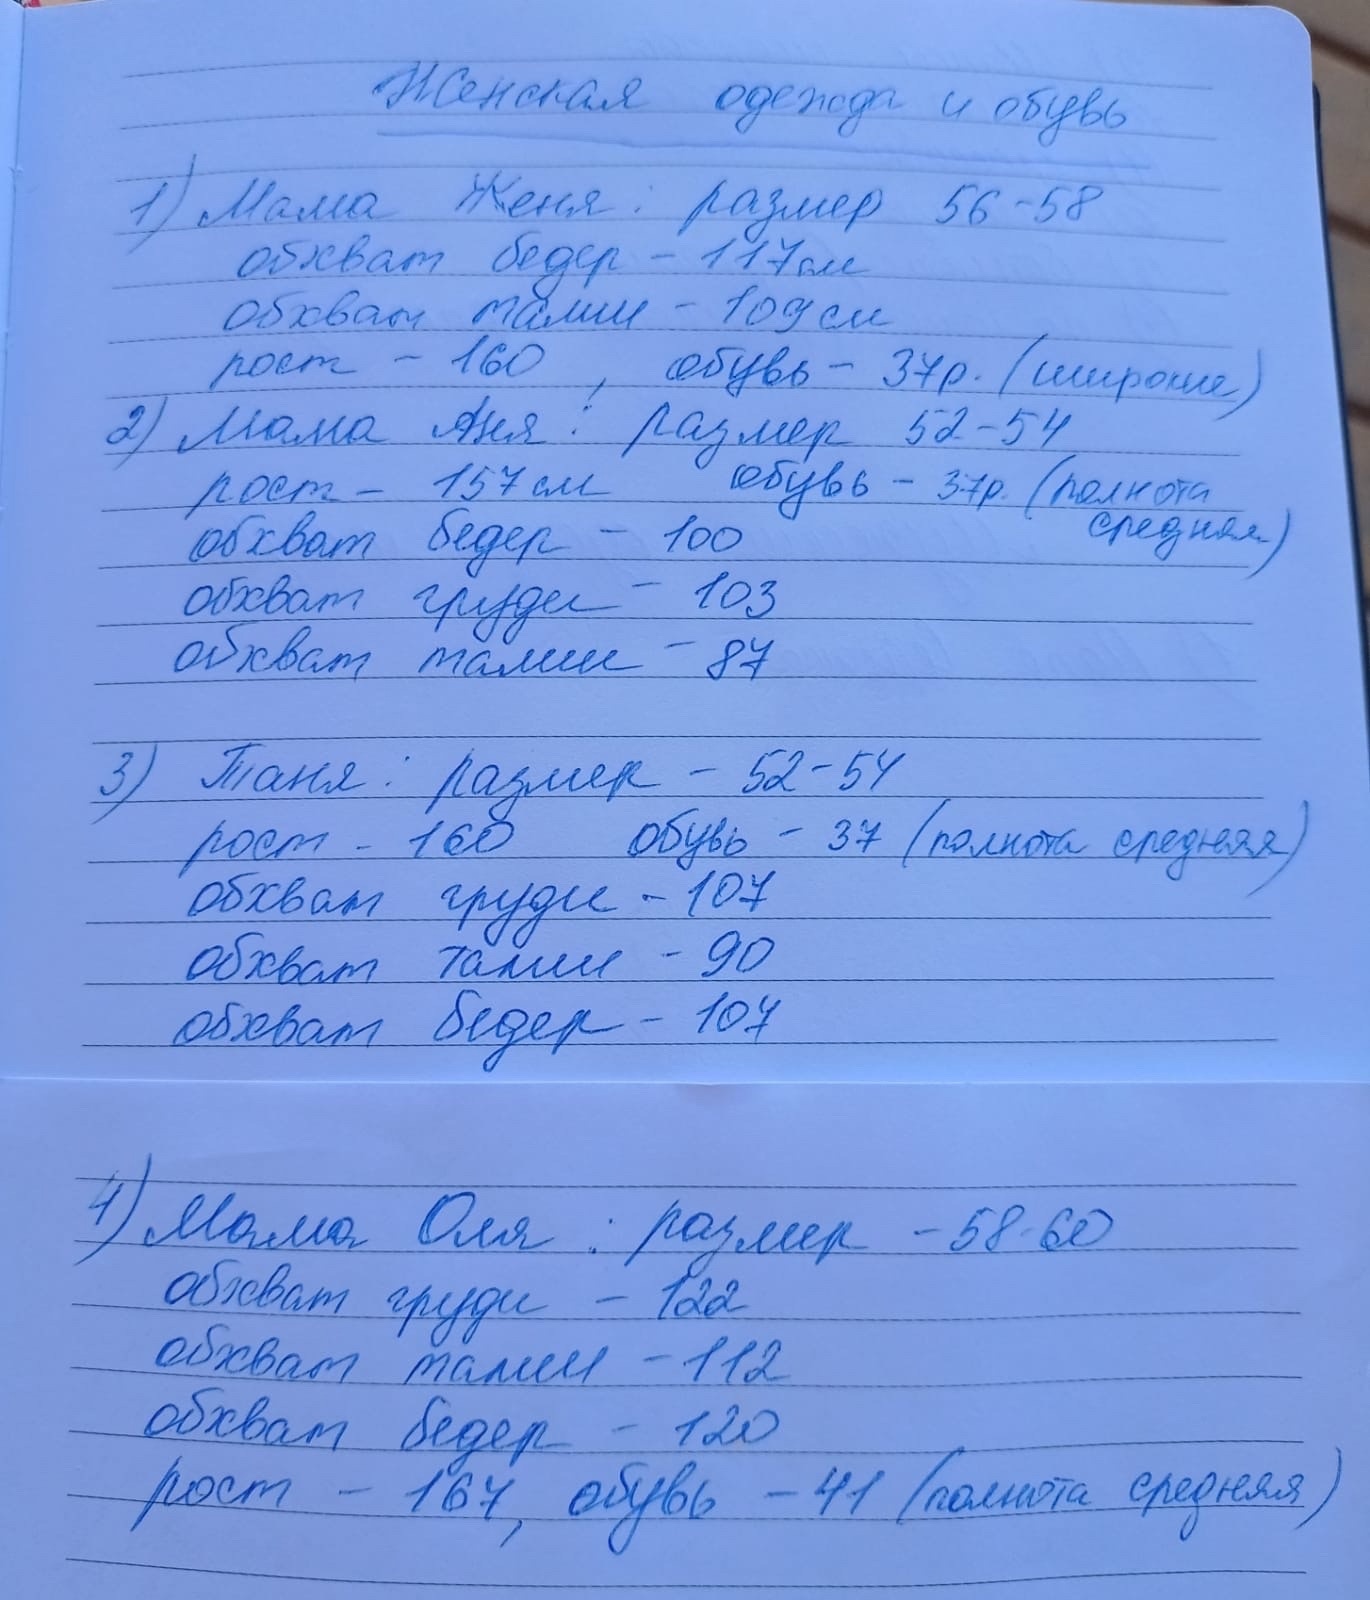 Женская одежда и обувь
1) Мама Женя: размер 56-58
обхват бедер - 117см
обхват талии - 109см
рост - 160, обувь - 37р. (широкие)
2) Мама Аня: размер 52-54
рост - 157см обувь - 37р. (полнота
средняя)
обхват бедер - 100
обхват груди - 103
обхват талии - 87
3) Таня: размер - 52-54
рост - 160 обувь - 37 (полнота средняя)
обхват груди - 107
обхват талии - 90
обхват бедер - 107
4) Мама Оля: размер - 58-60
обхват груди - 122
обхват талии - 112
обхват бедер - 120
рост - 167, обувь - 41 (полнота средняя)